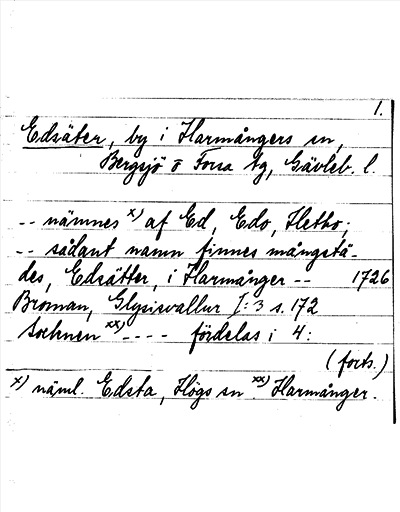 1.
Edsäter, by i Harmångers sn,
Bergsjö o Forsa tg, Gävleb. l.
-- nämnes x) af Ed, Edo, Hetho;
-- sådant namn finnes mångstä-
des, Edsätter, i Harmånger -- 1726
Broman, Glysisvallur I: 3 s. 172
Sochnen xx) ---- fördelas i 4:
(forts.)
x) näml. Edsta, Högs sn xx) Harmånger.